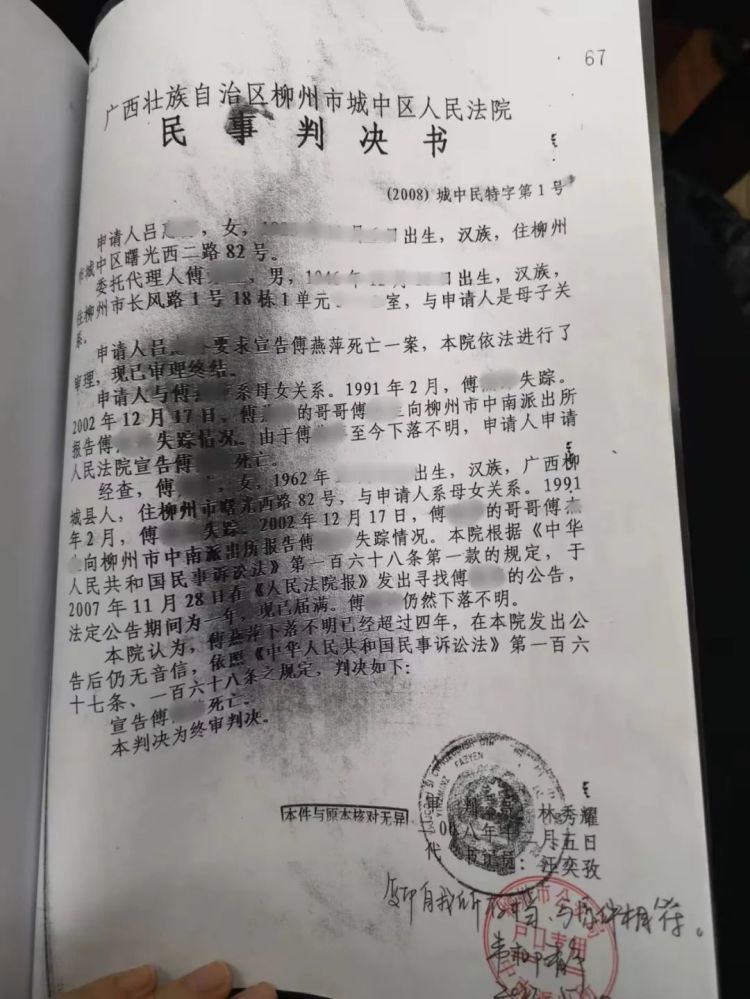 67
广西壮族自治区柳州市城中区人民法院
民事判决书
(2008)城中民特字第1号
申请人吕 ，女， 出生，汉族，住柳州
市城中区曙光西二路82号。
委托代理人傅 ，男， 出生，汉族，
住柳州市长风路1号18栋1单元 室，与申请人是母子关
系。
申请人吕 要求宣告傅燕萍死亡一案，本院依法进行了
审理，现已审理终结。
申请人与傅 系母女关系。1991年2月，傅 失踪。
2002年12月17日，傅 的哥哥傅 向柳州市中南派出所
报告傅 失踪情况。由于傅 至今下落不明，申请人申请
人民法院宣告傅 死亡。
经查，傅 ，女，1962年 出生，汉族，广西柳
城县人，住柳州市曙光西路82号，与申请人系母女关系。1991
年2月，傅 失踪。2002年12月17日，傅 的哥哥傅杰
向柳州市中南派出所报告傅 失踪情况。本院根据《中华
人民共和国民事诉讼法》第一百六十八条第一款的规定，于
2007年11月28日在《人民法院报》发出寻找傅 的公告，
法定公告期间为一年，现已届满。傅 仍然下落不明。
本院认为，傅燕萍下落不明已经超过四年，在本院发出公
告后仍无音信，依照《中华人民共和国民事诉讼法》第一百六
十七条、一百六十八条之规定，判决如下：
宣告傅 死亡。
本判决为终审判决。
审判 林秀耀
二00八年 月五日
本件与原本核对无异
代 书记员：汪奕孜
复印自我所 与原件相符。